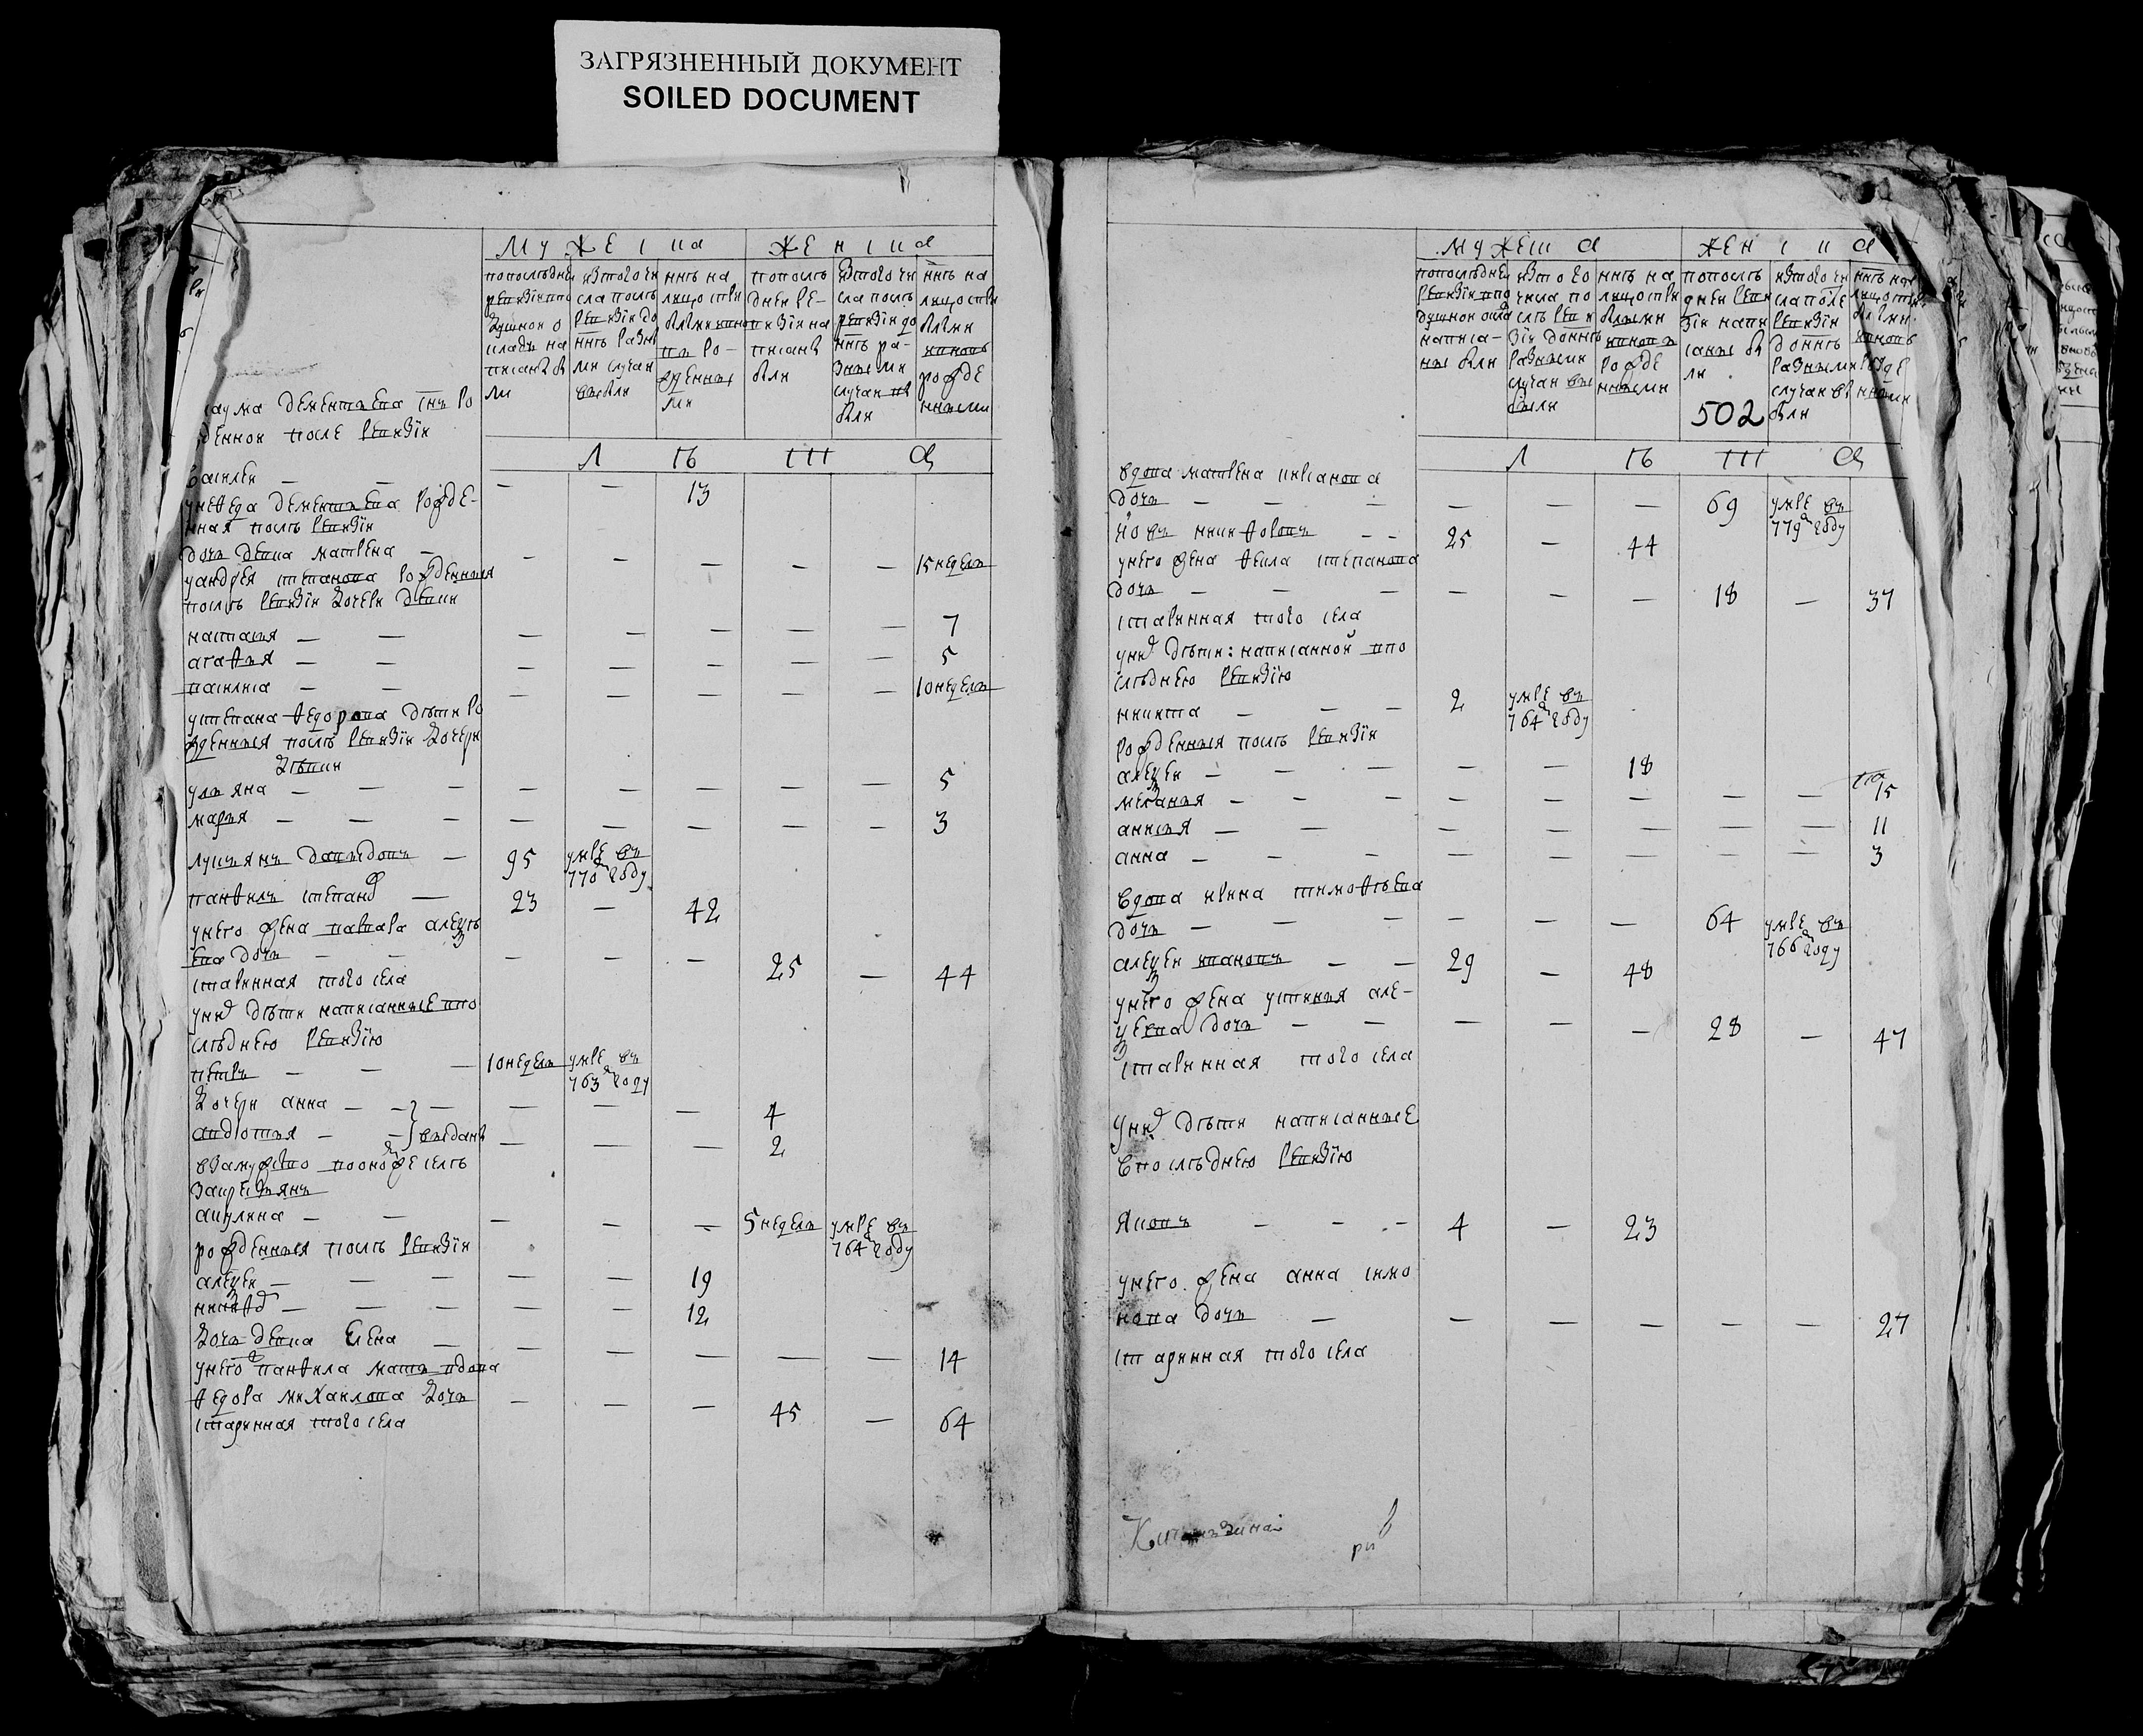 ЗАГРЯЗНЕННЫЙ ДОКУМЕНТ
SOILED DOCUMENT
мужеска женска
по последнеи ревизiи в подушнои оклад написаны были
из того числа после ревизiи до ныне разными случаи выбыли
ныне на лицо с прибылыми и вновь рожденными
по последнеи ревизiи написаны были
из того числа после ревизiи до ныне разными случаи выбыли
ныне на лицо с прибылыми и вновь рожденными
лета
наума дементьева сын ро
жденнои после ревизiи
василеи — — — — 13
дементьева рожде-
ная после ревизiи
дочь девка матрена — — — — — — 15 недель
у андрея степанова рожденныя
после ревизiи дочери девки
настасья — — — — — — — 7
агафья — — — — — — — 5
василиса — — — — — — — 10 недель
у степана федорова дети ро
жденныя после ревизiи дочери
девки
ульяна — — — — — — — — 5
марья — — — — — — — — 3
лукьянъ давыдовъ — 95 умре въ
770 м году
панфилъ степанов — 23 — 42
у него жена варвара алексе
ева дочь — — — — — 25 — 44
старинная того села
у них дети написанные в по
следнею ревизiю
петръ — — — 10 недель умре въ
763 м году
дочери анна — — — — — — 4
авдотья — — выданы — — — 2
в замужство в оном же селе
за крестьянъ
акулина — — — — — 5 недель умре въ
764 м году
рожденныя после ревизiи
алексеи — — — — — 19
никифор — — — — — 12
дочь девка елена — — — — — — 14
у него панфила мать вдова
федора михаилова дочь — — — 45 — 64
старинная того села
мужеска женска
по последнеи ревизiи в подушнои оклад написаны были
из того числа после ревизiи до ныне разными случаи выбыли
ныне на лицо с прибылыми и вновь рожденными
по последнеи ревизiи написаны были
из того числа после ревизiи до ныне разными случаи выбыли
ныне на лицо с прибылыми и вновь рожденными
502
лета
вдова матрена
дочь — — — — — — 69 умре въ
779 м году
иовъ никифоровъ — — 25 — 44
у него жена фекла степанова
дочь — — — — — — 18 — 37
старинная того села
у них дети: написаннои в по
следнею ревизiю
никита — — — 2 умре въ
764 м году
рожденныя после ревизiи
алексеи — — — — — 18
меланья — — — — — — — — 15
анисья — — — — — — — 11
анна — — — — — — — — 3
вдова ирина тимофеева
дочь — — — — — — 64 умре въ
766 м году
алексеи ивановъ — — 29 — 48
у него жена устинья але-
ксеева дочь — — — — — 28 — 47
старинная того села
у них дети написанные
в последнею ревизiю
яковъ — — — 4 — 23
у него жена анна симо
нова дочь — — — — — — 27
старинная того села